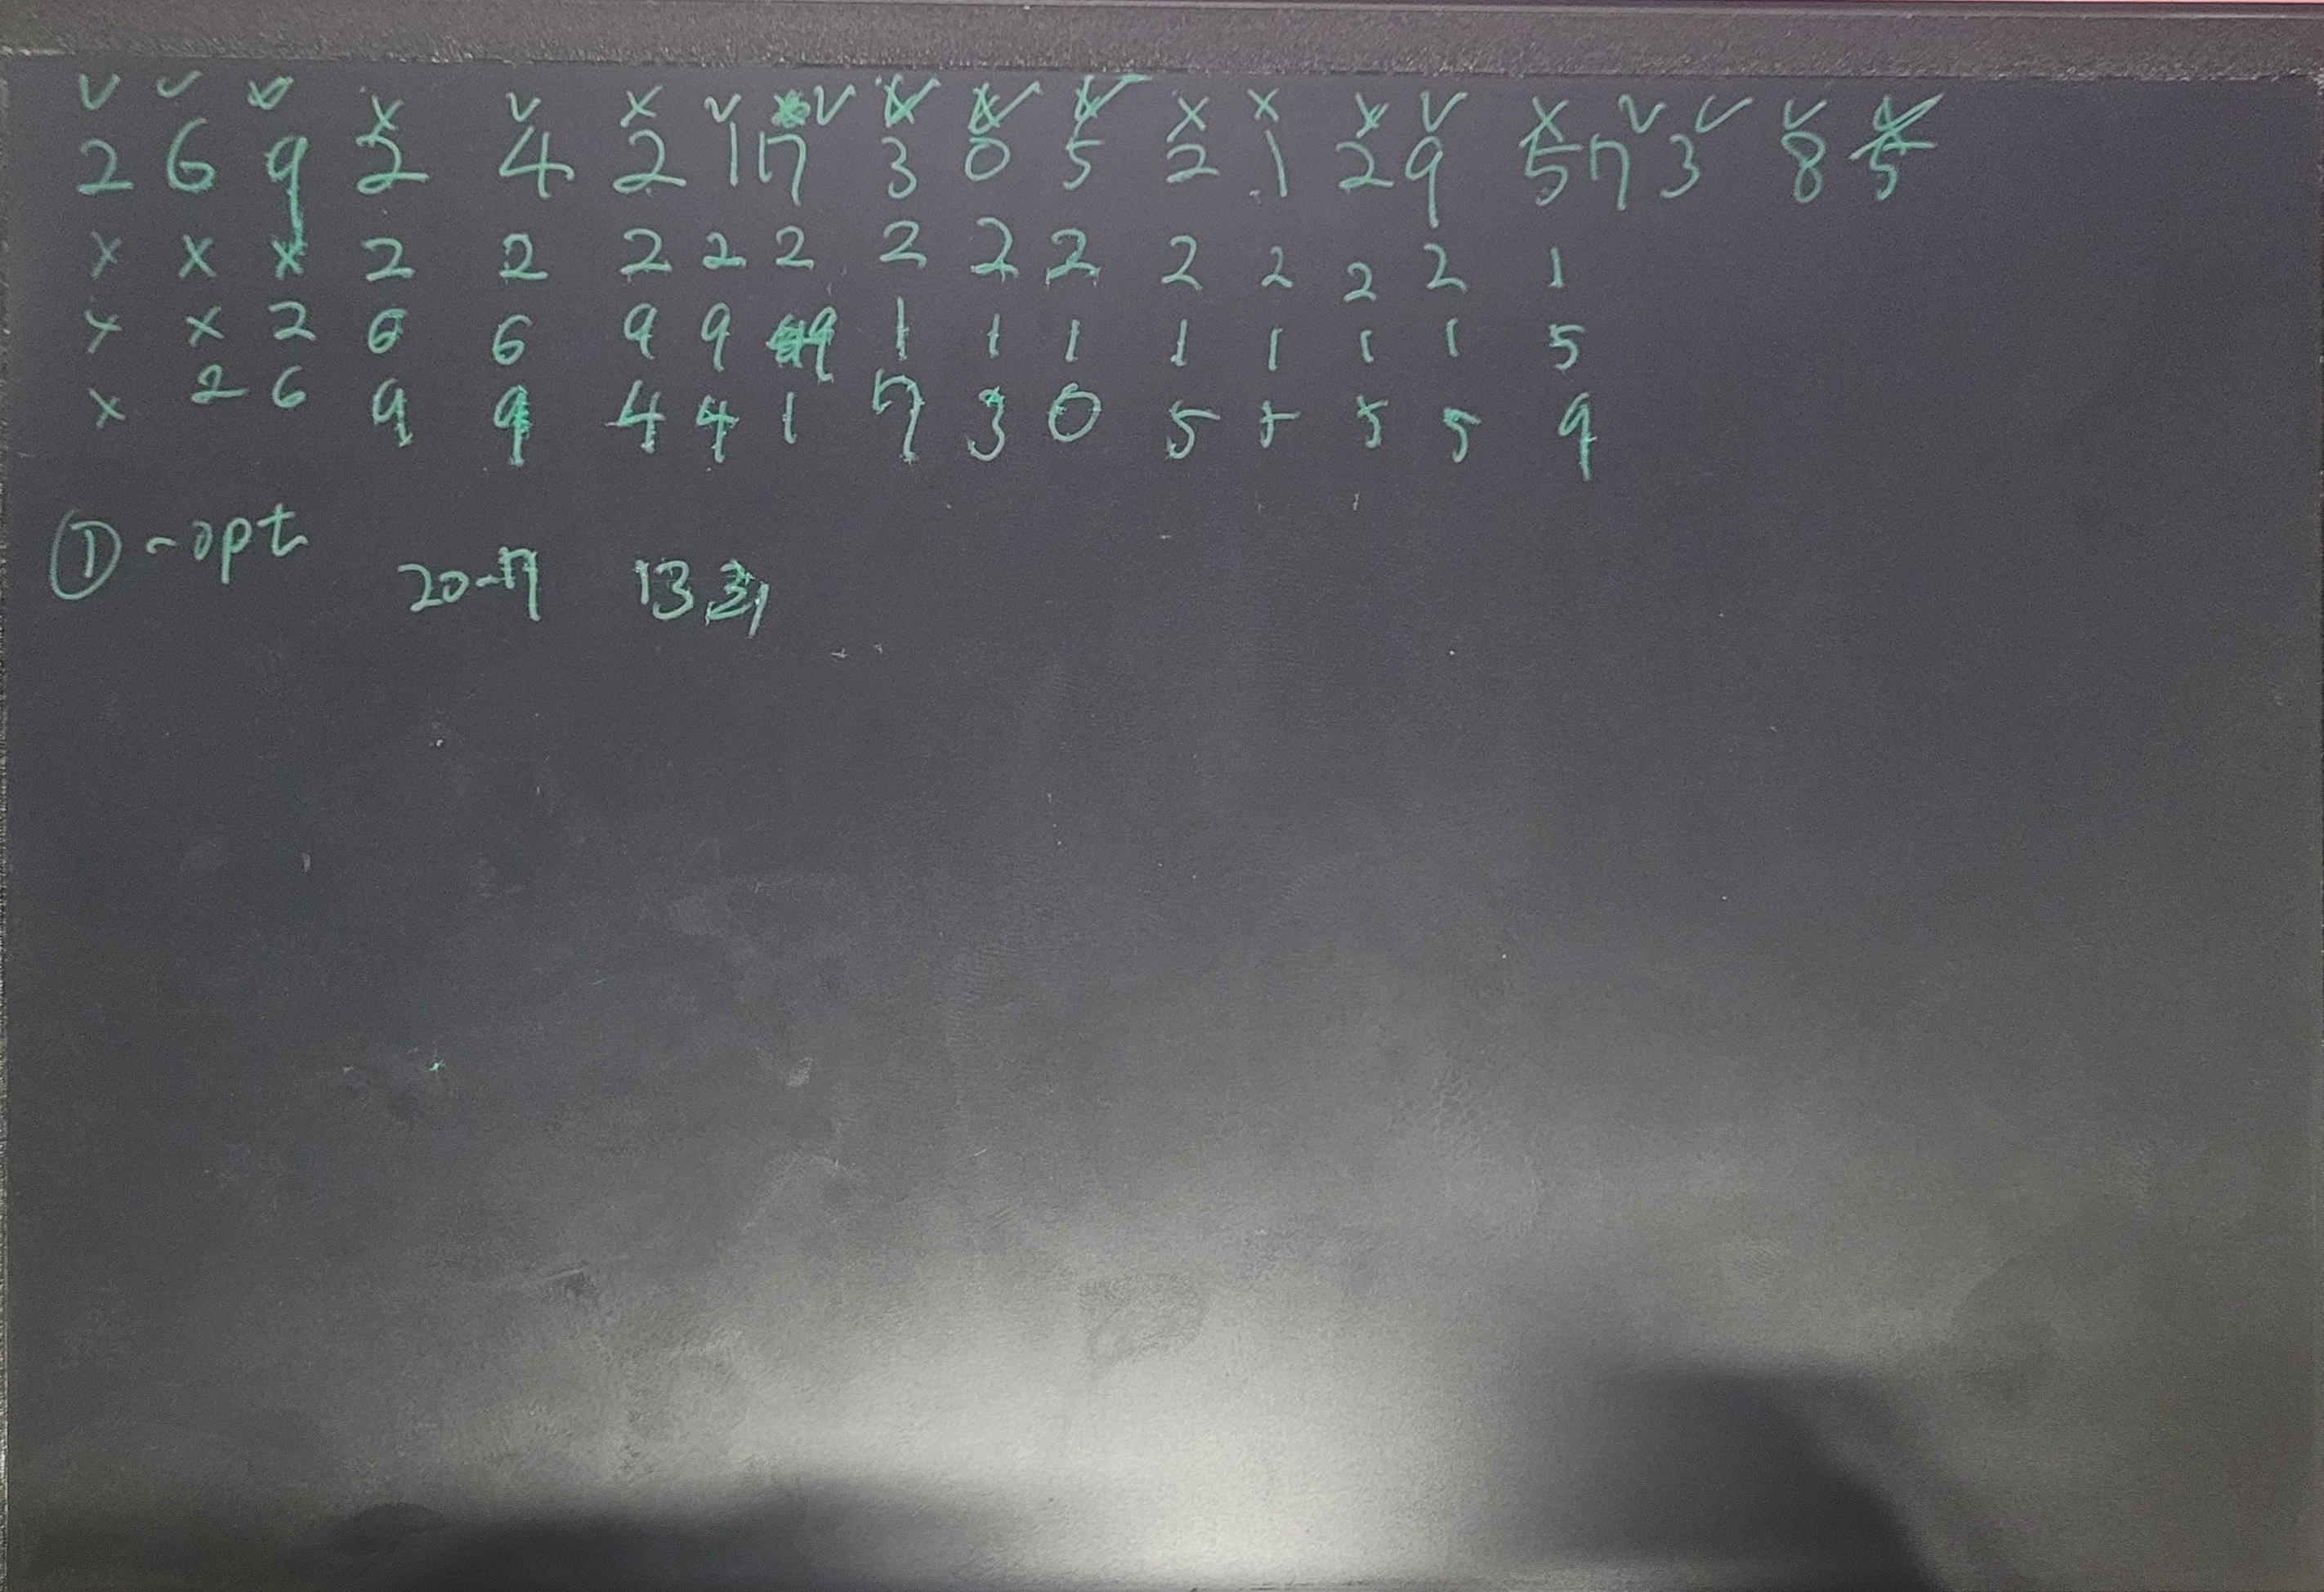 v v v x v x v v v v v x x x v x v v v
2 6 9 2 4 2 1 7 3 0 5 2 1 2 9 5 7 3 8 5
x x x 2 2 2 2 2 2 2 2 2 2 2 2 1
x x 2 6 6 9 9 9 1 1 1 1 1 1 1 5
x 2 6 9 9 4 4 1 7 3 0 5 5 5 5 9
① - opt
20-7 13